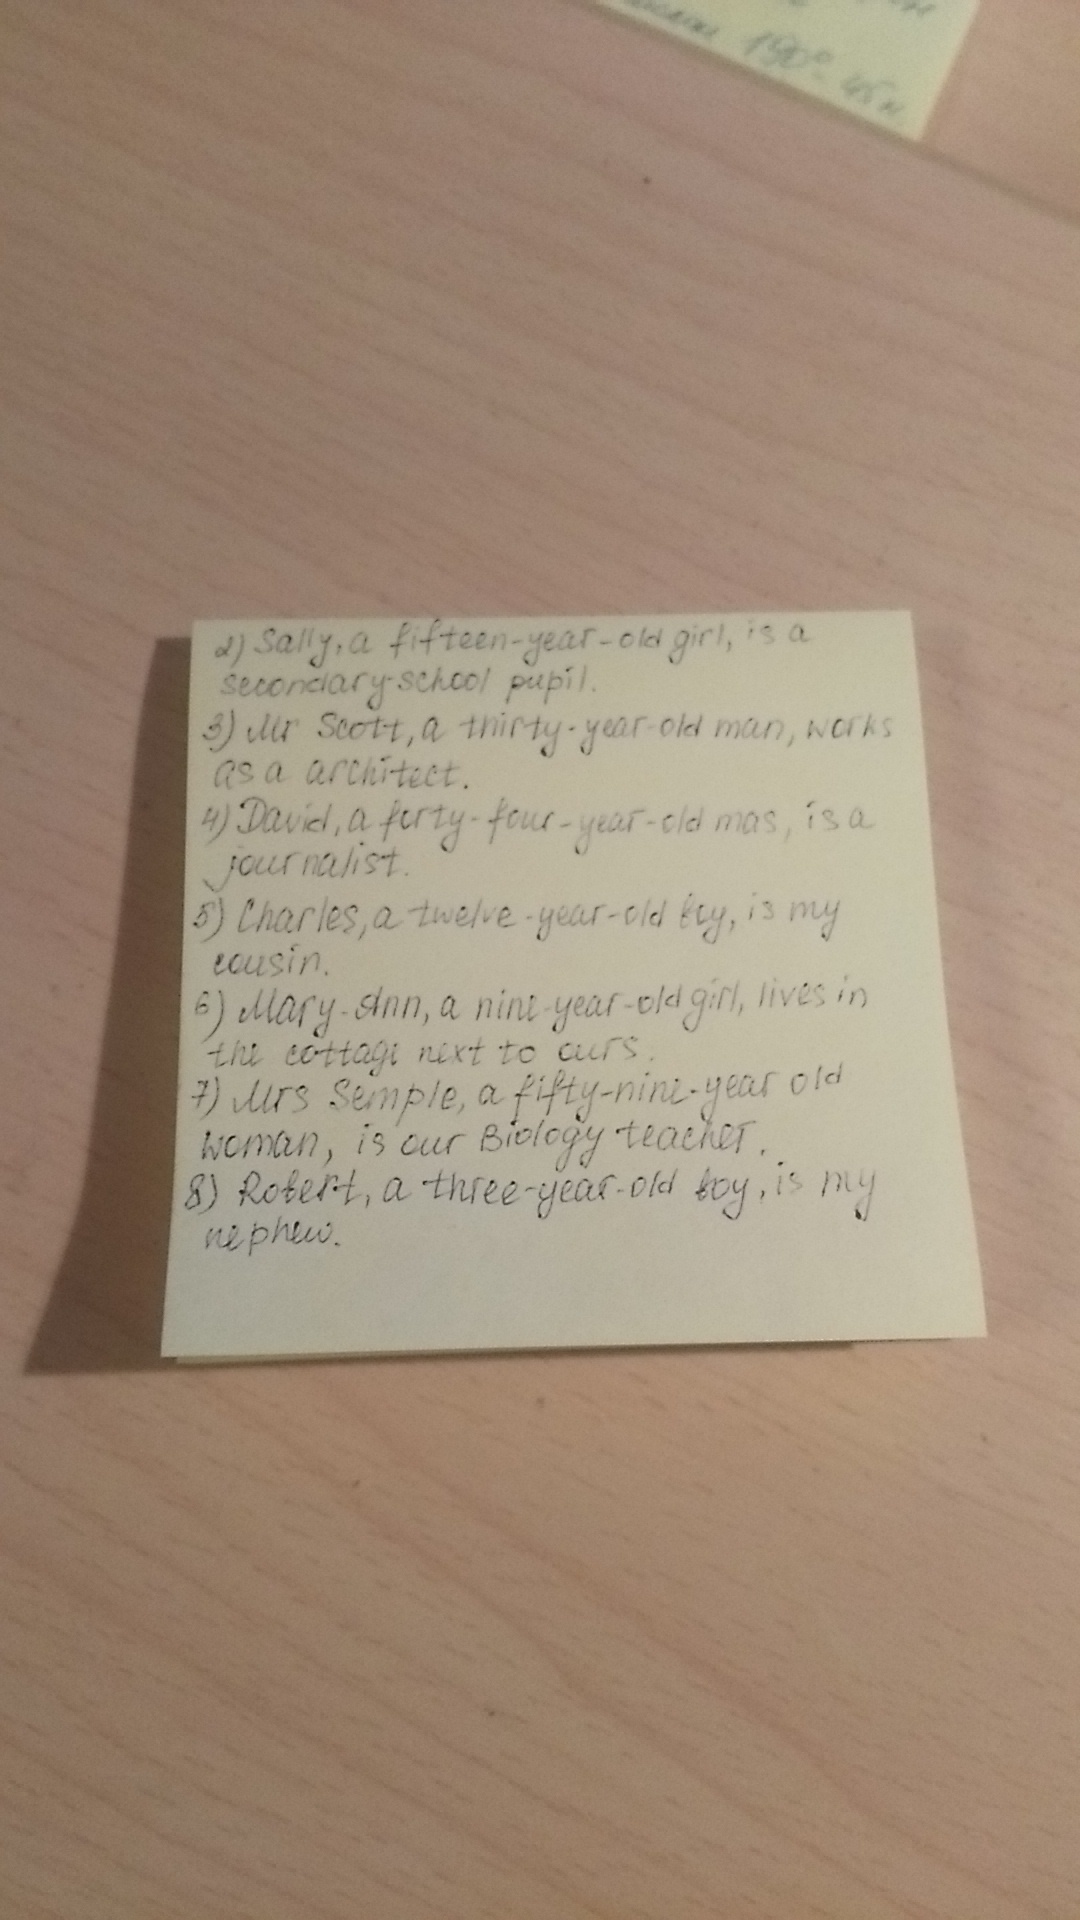 190°- 45м
2) Sally, a fifteen-year-old girl, is a
secondary-school pupil.
3) Mr Scott, a thirty-year-old man, works
as a architect.
4) David, a forty-four-year-old mas, is a
journalist.
5) Charles, a twelve-year-old boy, is my
cousin.
6) Mary-Ann, a nine-year-old girl, lives in
the cottage next to ours.
7) Mrs Semple, a fifty-nine-year old
woman, is our Biology teacher.
8) Robert, a three-year-old boy, is my
nephew.